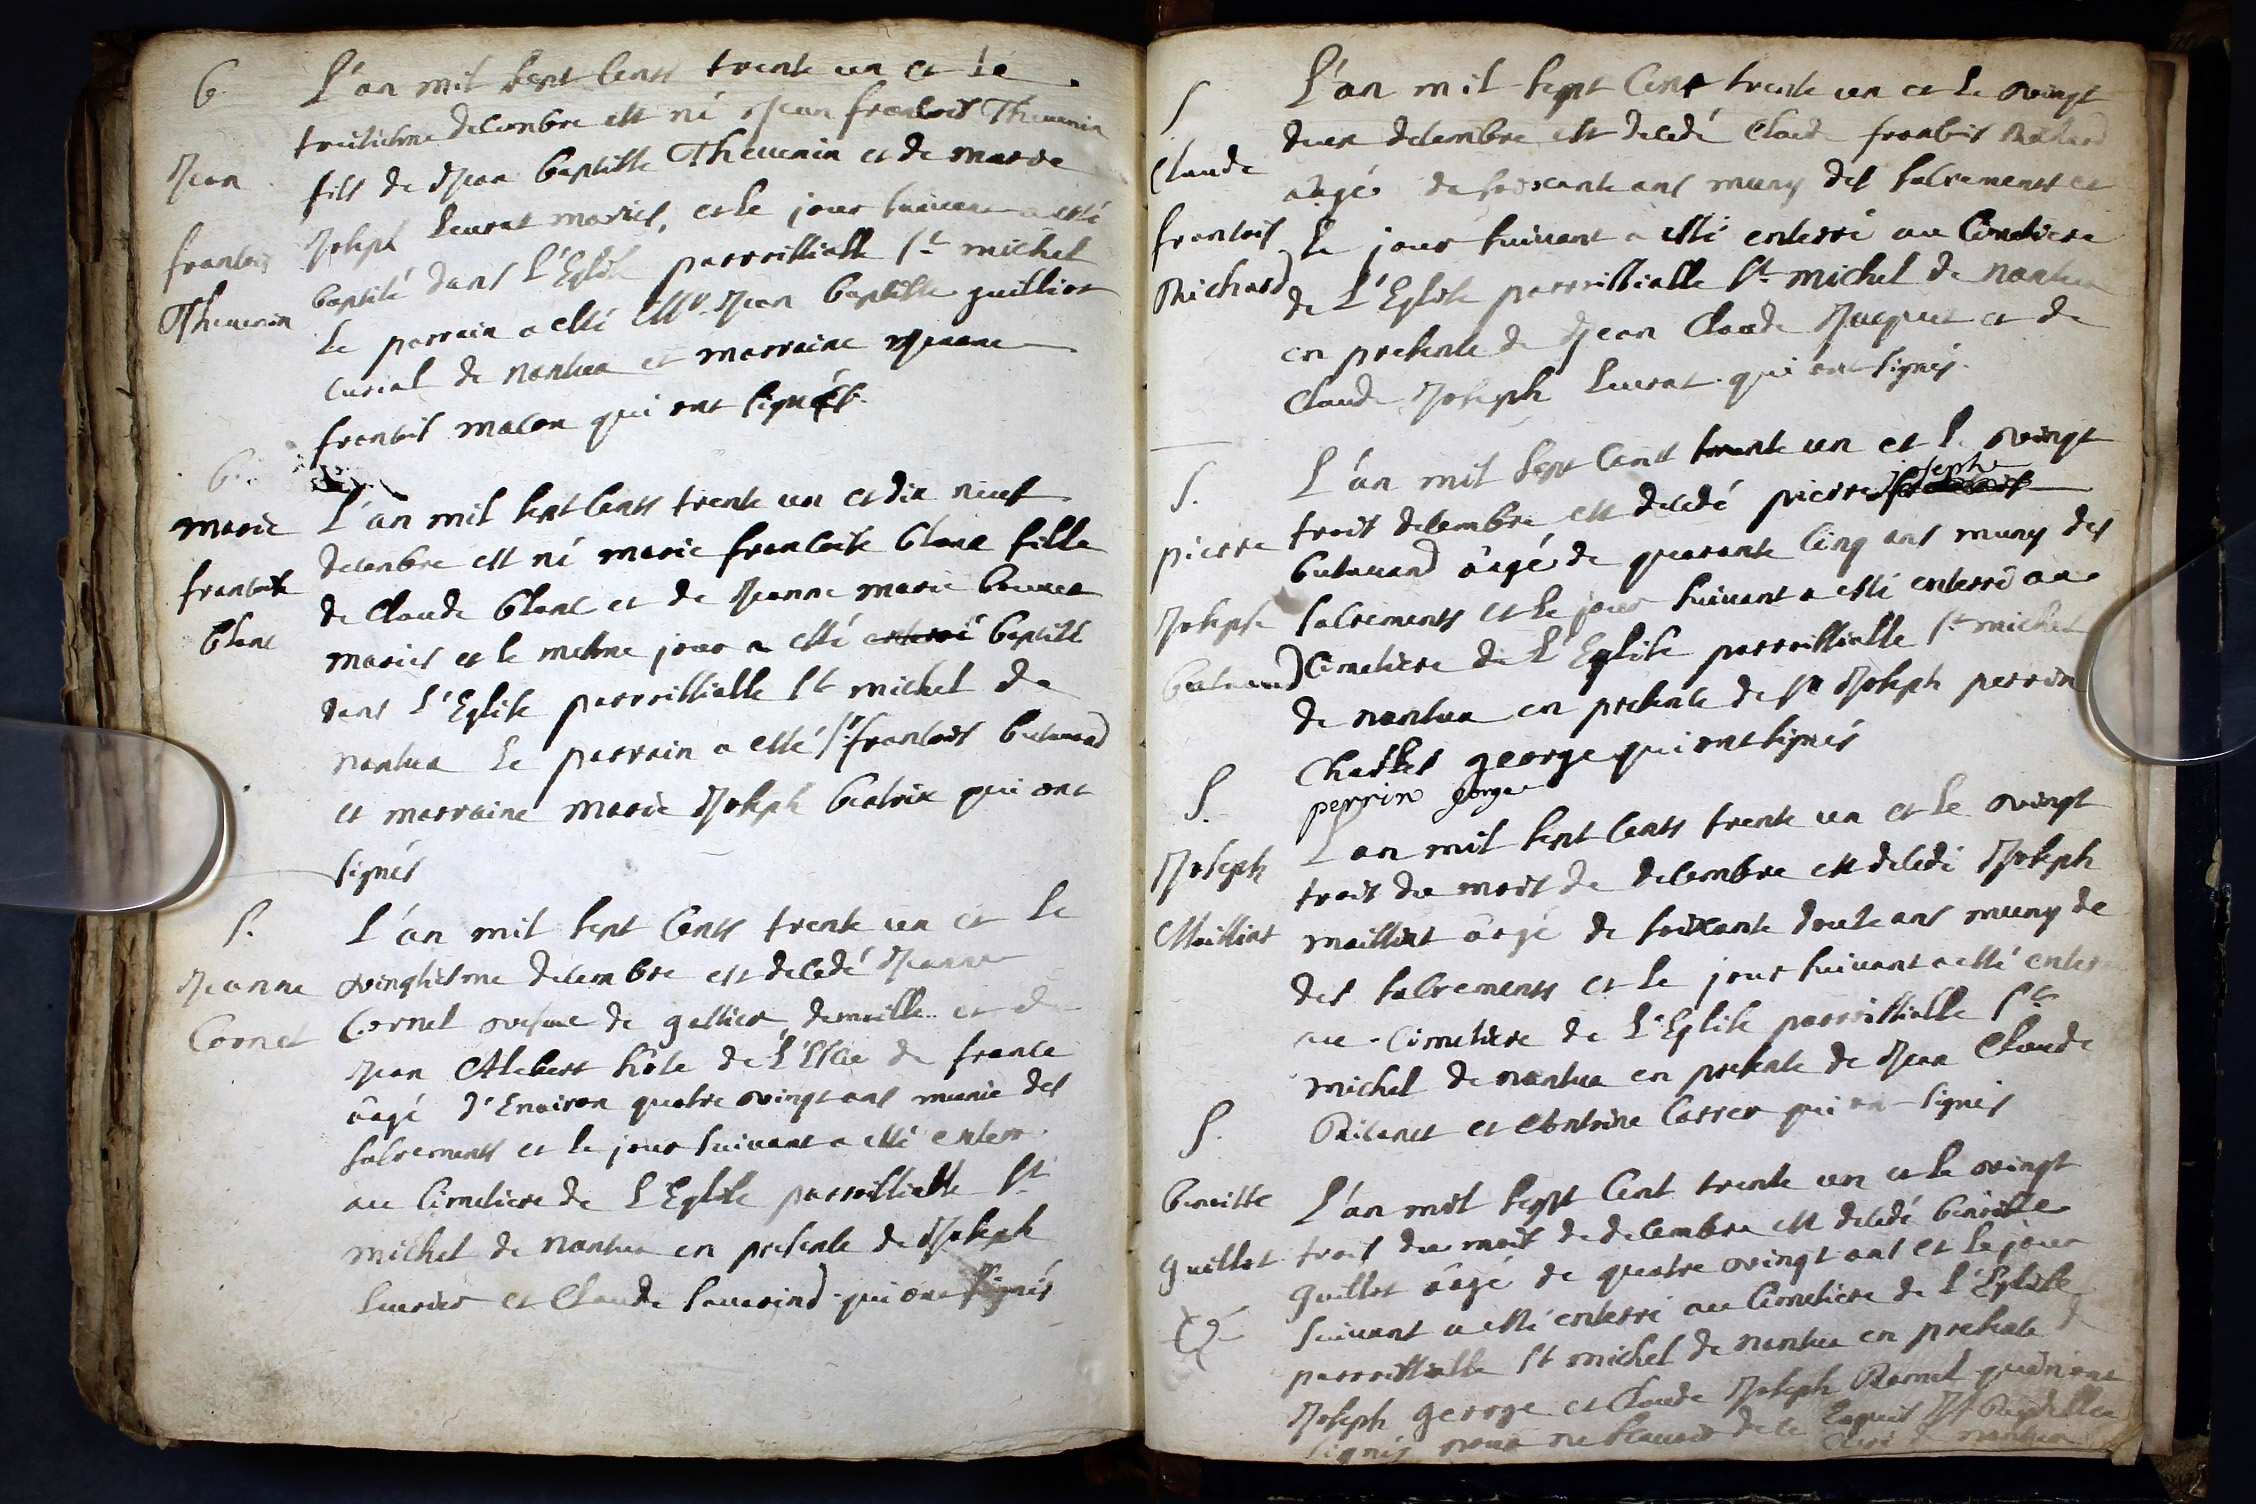 B
Jean
francois
Thevenin
L'an mil sept cents trente un et le
treitiesme decembre est né Jean francois Thevenin
fils de Jean baptiste Thevenin et de marie
Joseph leurat mariés, et le jour suivant a esté
baptisé dans l'Eglise parroissialle St michel
le parrain a esté Mr Jean baptiste guilliot
curial de nantua et marraine
francois macon qui ont signés
B
marie
francoise
blanc
L'an mil sept cents trente un et dix neuf
decenbre est né marie francoise blanc fille
de claude blanc et de Jeanne marie
mariés et le mesme jour a esté enterré baptisé
dans l'Eglise parroissialle St michel de
nantua le parrain a esté Sr francois butavand
et marraine marie Joseph beatrix qui ont
signés
S.
Jeanne
Cornet
L'an mil sept cents trente un et le
vingtiesme decembre est decedé Jeanne
Cornet vefve de et de
Jean hôte de l'Escu de france
âagé d'Environ quatre vingt ans munie des
sacrements et le jour suivant a esté enterr
au cimetiere de l'Eglise parroissialle St
michel de nantua en presente de Joseph
et Claude qui ont signés
S.
Claude
francois
Richard
L'an mil sept cent trente un et le vingt
deux decembre est decedé Claude francois
âagé de soixcante ans muny des sacrements et
le jour suivant a esté enterré au cimetiere
de l'Eglise parroissialle St michel de nantua
en presente de Jean Claude Jacquet et de
Claude Joseph leurat qui ont signés.
S.
pierre
Joseph
butavand
L'an mil sept cents trente un et le vingt
trois decembre est decedé pierre Joseph
butavand âagé de quarante cinq ans muny des
sacrements et le jour suivant a esté enterré au
cimetiere de l'Eglise parroissialle St michel
de nantua en presente de Sr Joseph perrin
Charles george qui ont signés
perrin george
S.
Joseph
Mailliat
L'an mil sept cents trente un et le vingt
trois du mois de decembre est decedé Joseph
maillint âagé de soixante douze ans muny de
des sacrements et le jour suivant a esté enterr
au cimetiere de l'Eglise parroissialle St
michel de nantua en presente de Jean Claude
et Antoine Carrer qui ont signés
S.
benoitte
guillot
L'an mil sept cent trente un et le vingt
trois du mois de decembre est decedé benoitte
guillot âagé de quatre vingt ans et le jour
suivant a esté enterré au cimetiere de l'Eglise
parroissialle St michel de nantua en presente de
Joseph george et Claude Joseph qui n'ont
signés pour ne scavoir de ce
curé de nantua